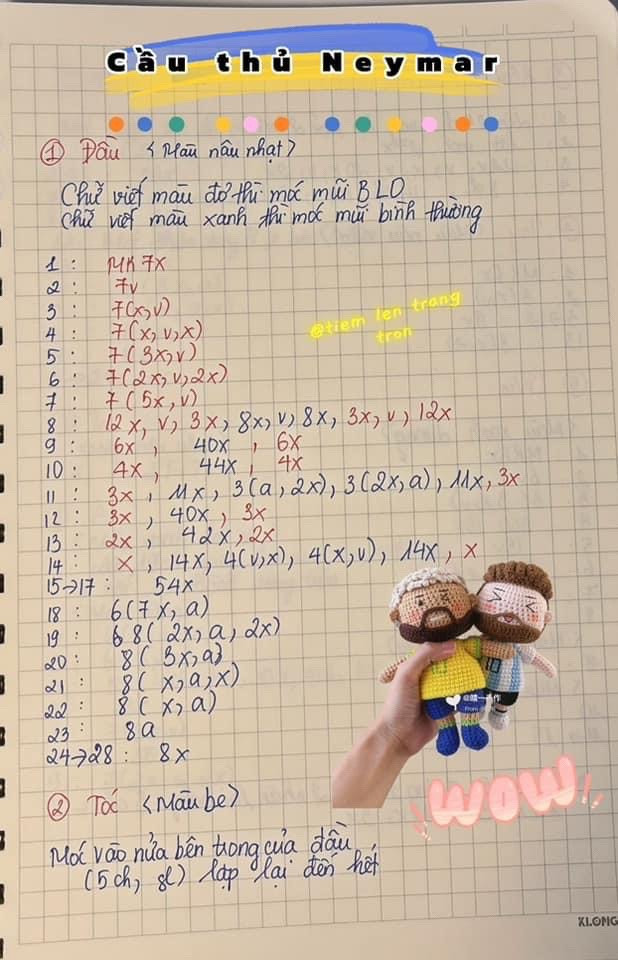 Cầu thủ Neymar
① Đầu <Màu nâu nhạt>
Chữ viết màu đỏ thì móc mũi BLO
Chữ viết màu xanh thì móc mũi bình thường
1 : MR 7X
2 : 7V
3 : 7(X, V)
4 : 7(X, V, X)
5 : 7(3X, V)
6 : 7(2X, V, 2X)
7 : 7(5X, V)
8 : 12X, V, 3X, 8X, V, 8X, 3X, V, 12X
9 : 6X, 40X, 6X
10 : 4X, 44X, 4X
11 : 3X, 11X, 3(A, 2X), 3(2X, A), 11X, 3X
12 : 3X, 40X, 3X
13 : 2X, 42X, 2X
14 : X, 14X, 4(V, X), 4(X, V), 14X, X
15→17 : 54X
18 : 6(7X, A)
19 : 6 8(2X, A, 2X)
20 : 8(3X, A)
21 : 8(X, A, X)
22 : 8(X, A)
23 : 8A
24→28 : 8X
@tiem len trang
tron
@囍一手作
From
10
② Tóc <Màu be>
Móc vào nửa bên trong của đầu
(5ch, sl) lặp lại đến hết
WOW!!
KLONG